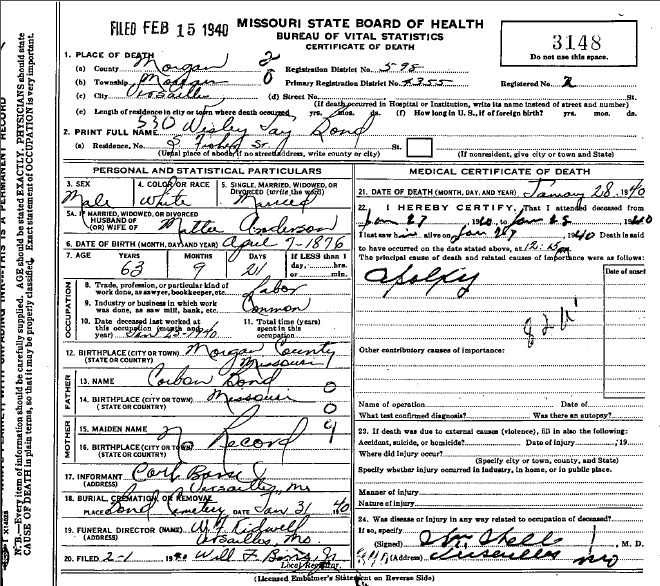 FILED FEB 15 1940
MISSOURI STATE BOARD OF HEALTH
BUREAU OF VITAL STATISTICS
CERTIFICATE OF DEATH
3148
Do not use this space.
1. PLACE OF DEATH
(a) County Morgan Registration District No. 598
(b) Township Primary Registration District No. Registered No. 2
(c) City Versailles (d) Street No. St.
(If death occurred in Hospital or Institution, write its name instead of street and number)
(e) Length of residence in city or town where death occurred yrs. mos. ds. (f) How long in U. S., if of foreign birth? yrs. mos. ds.
2. PRINT FULL NAME Wesley Jay Bond
(a) Residence, No. St.
(Usual place of abode, if no street address, write county or city) (If nonresident, give city or town and State)
PERSONAL AND STATISTICAL PARTICULARS
3. SEX Male
4. COLOR OR RACE White
5. SINGLE, MARRIED, WIDOWED, OR DIVORCED (write the word) Married
5A. IF MARRIED, WIDOWED, OR DIVORCED
HUSBAND OF
(OR) WIFE OF Anderson
6. DATE OF BIRTH (MONTH, DAY, AND YEAR) April 7-1876
7. AGE YEARS MONTHS DAYS If LESS than 1
63 9 21 day, hrs.
or min.
OCCUPATION
8. Trade, profession, or particular kind of
work done, as sawyer, bookkeeper, etc. Labor
9. Industry or business in which work
was done, as saw mill, bank, etc. Common
10. Date deceased last worked at
this occupation (month and
year) Jan 1940
11. Total time (years)
spent in this
occupation
12. BIRTHPLACE (CITY OR TOWN) Morgan County
(STATE OR COUNTRY) Missouri
FATHER
13. NAME Bond
14. BIRTHPLACE (CITY OR TOWN) Missouri
(STATE OR COUNTRY)
MOTHER
15. MAIDEN NAME
16. BIRTHPLACE (CITY OR TOWN) No Record
(STATE OR COUNTRY)
17. INFORMANT Carl Bond
(ADDRESS) Versailles, Mo
18. BURIAL, CREMATION, OR REMOVAL
PLACE Bond Cemetery DATE Jan 31, 40
19. FUNERAL DIRECTOR (NAME) Kidwell
(ADDRESS) Versailles, Mo.
20. FILED 2-1 1940 Will F.
Local Registrar.
MEDICAL CERTIFICATE OF DEATH
21. DATE OF DEATH (MONTH, DAY, AND YEAR) January 28, 1940
22. I HEREBY CERTIFY, That I attended deceased from
Jan 27 1940, to Jan 28 1940
I last saw him alive on Jan 28 1940 Death is said
to have occurred on the date stated above, at
The principal cause of death and related causes of importance were as follows:
Date of onset
Other contributory causes of importance:
Name of operation Date of
What test confirmed diagnosis? Was there an autopsy?
23. If death was due to external causes (violence), fill in also the following:
Accident, suicide, or homicide? Date of injury , 19
Where did injury occur?
(Specify city or town, county, and State)
Specify whether injury occurred in industry, in home, or in public place.
Manner of injury
Nature of injury
24. Was disease or injury in any way related to occupation of deceased?
If so, specify
(Signed) M. D.
(Address) Versailles Mo
(Licensed Embalmer's Statement on Reverse Side)
N. B.—Every item of information should be carefully supplied. AGE should be stated EXACTLY. PHYSICIANS should state
CAUSE OF DEATH in plain terms, so that it may be properly classified. Exact statement of OCCUPATION is very important.